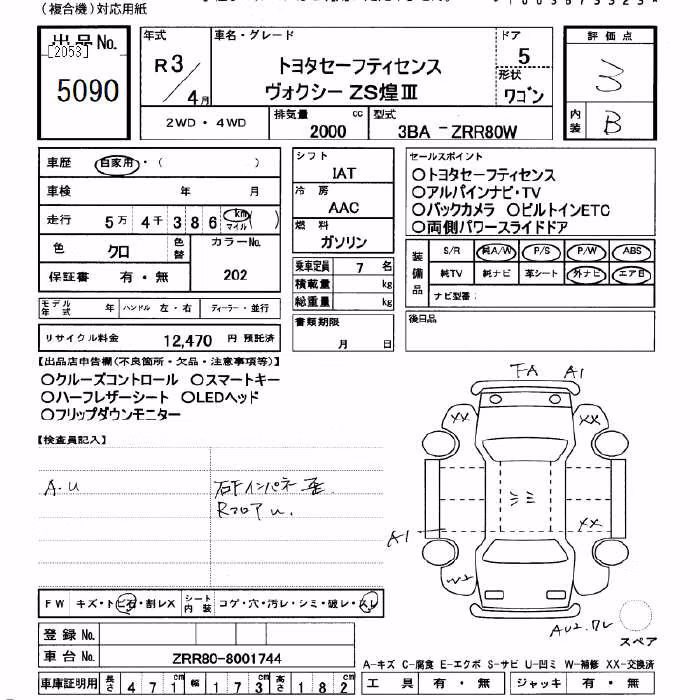 (複合機)対応用紙
出品No.
[2053]
5090
年式
R3/4月
車名・グレード
トヨタセーフティセンス
ヴォクシー ZS煌Ⅲ
ドア
5
形状
ワゴン
評価点
3
内装
B
2WD・4WD
排気量
2000 cc
型式
3BA-ZRR80W
車歴 自家用・( )
車検 年 月
走行 5万 4千 386 km マイル ( )
色 クロ 色替
カラーNo.
202
保証書 有・無
モデル年式 年 ハンドル 左・右 ディーラー・並行
リサイクル料金 12,470 円 預託済
シフト
IAT
冷房
AAC
燃料
ガソリン
乗車定員 7 名
積載量 kg
総重量 kg
書類期限
月 日
セールスポイント
○トヨタセーフティセンス
○アルパインナビ・TV
○バックカメラ ○ビルトインETC
○両側パワースライドドア
装備品
S/R 純A/W P/S P/W ABS
純TV 純ナビ 革シート 外ナビ エアB
ナビ型番:
後日品
【出品店申告欄(不良箇所・欠品・注意事項等)】
○クルーズコントロール ○スマートキー
○ハーフレザーシート ○LEDヘッド
○フリップダウンモニター
【検査員記入】
A.U
Rフロア u.
FA A1
XX XX
シミ
XX
A1
W2
AU2.
スペア
FW キズ・トビ石・割レX シート内装 コゲ・穴・汚レ・シミ・破レ・スレ
登録No.
車台No. ZRR80-8001744
車庫証明用 長さ 471cm 幅 173cm 高さ 182cm
A-キズ C-腐食 E-エクボ S-サビ U-凹ミ W-補修 XX-交換済
工具 有・無 ジャッキ 有・無